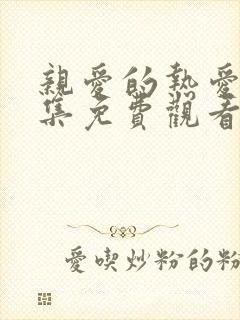 親愛的熱愛
集免費觀看
愛喫炒粉的粉